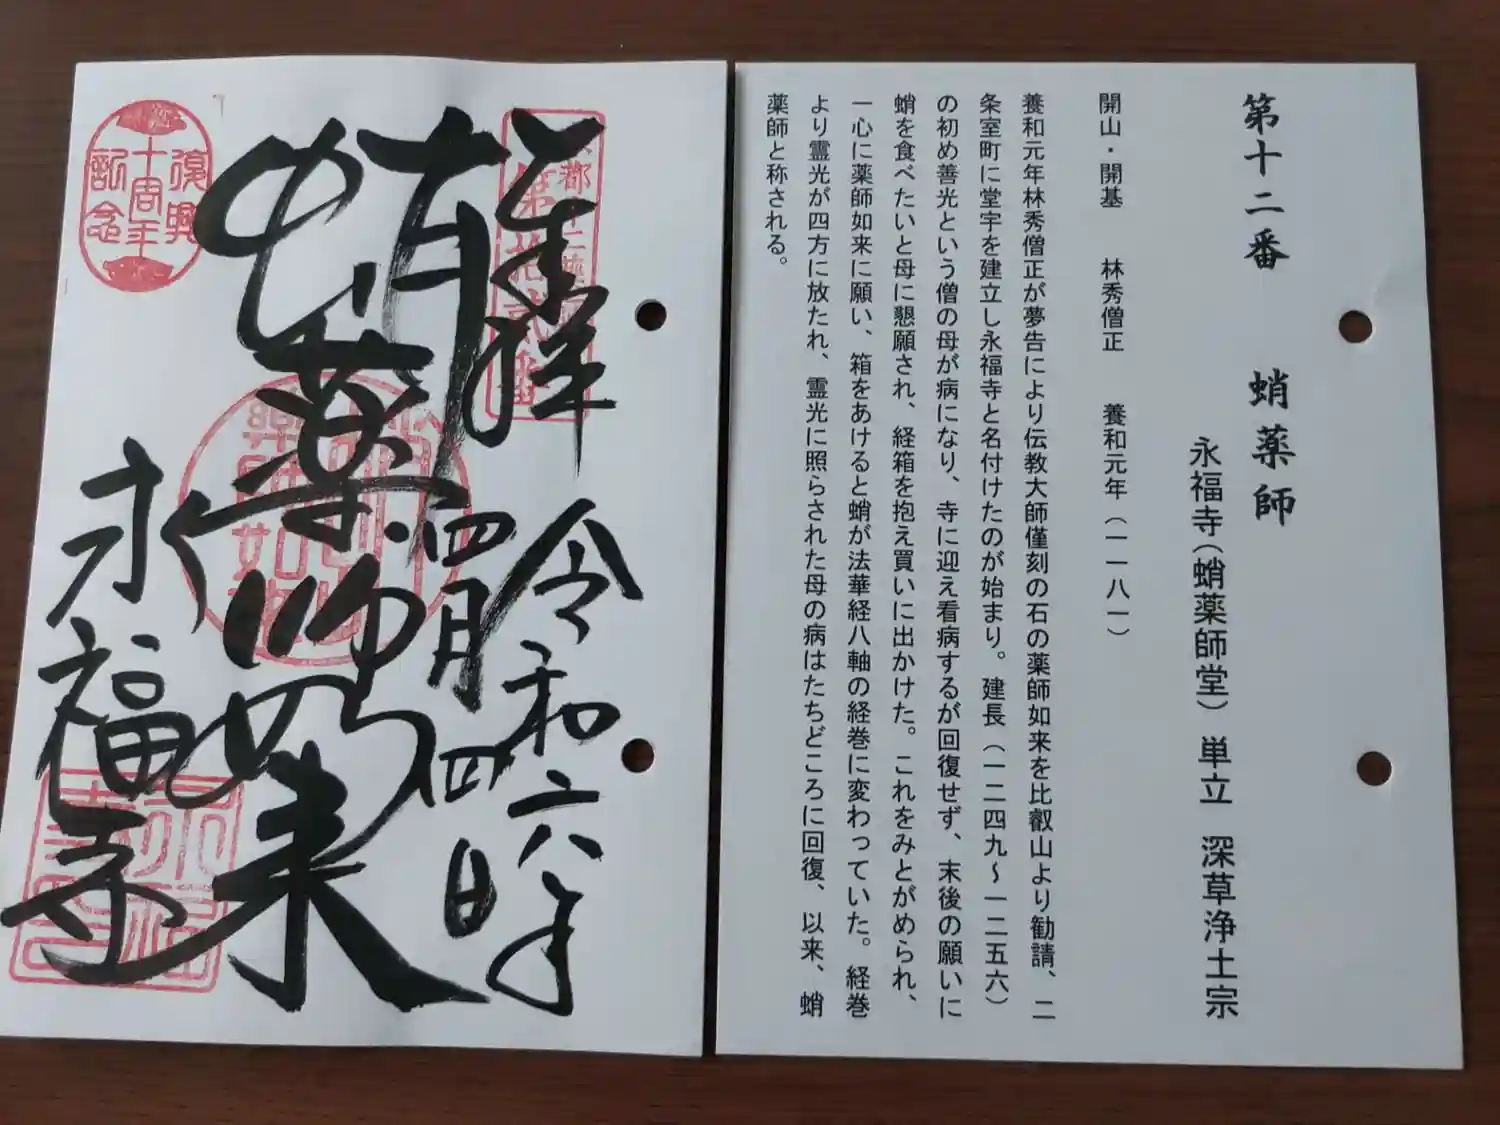 第十二番　蛸薬師
永福寺（蛸薬師堂）単立　深草浄土宗
開山・開基　林秀僧正　養和元年（一一八一）
養和元年林秀僧正が夢告により伝教大師僅刻の石の薬師如来を比叡山より勧請、二
条室町に堂宇を建立し永福寺と名付けたのが始まり。建長（一二四九～一二五六）
の初め善光という僧の母が病になり、寺に迎え看病するが回復せず、末後の願いに
蛸を食べたいと母に懇願され、経箱を抱え買いに出かけた。これをみとがめられ、
一心に薬師如来に願い、箱をあけると蛸が法華経八軸の経巻に変わっていた。経巻
より霊光が四方に放たれ、霊光に照らされた母の病はたちどころに回復、以来、蛸
薬師と称される。
奉拝
令和六年
四月四日
蛸薬師如来
永福寺
第拾貳番
復興
十周年
記念